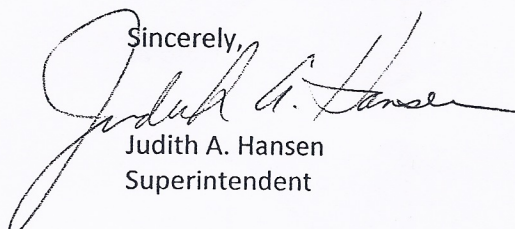 Sincerely,
Judith A. Hansen
Judith A. Hansen
Superintendent